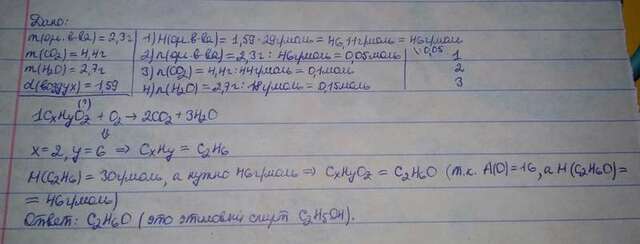 Дано:
m(орг. в-ва) = 2,3г
m(CO2) = 4,4г
m(H2O) = 2,7г
d(воздух) = 1,59
1) M(орг. в-ва) = 1,59 · 29г/моль = 46,11г/моль = 46г/моль
2) n(орг. в-ва) = 2,3г : 46г/моль = 0,05моль
3) n(CO2) = 4,4г : 44г/моль = 0,1моль
4) n(H2O) = 2,7г : 18г/моль = 0,15моль
: 0,05
1
2
3
(?)
1CxHyOz + O2 → 2CO2 + 3H2O
⇓
x = 2, y = 6 ⇒ CxHy = C2H6
M(C2H6) = 30г/моль, а нужно 46г/моль ⇒ CxHyOz = C2H6O (т.к. A(O) = 16, а M(C2H6O) =
= 46г/моль)
Ответ: C2H6O (это этиловый спирт C2H5OH).